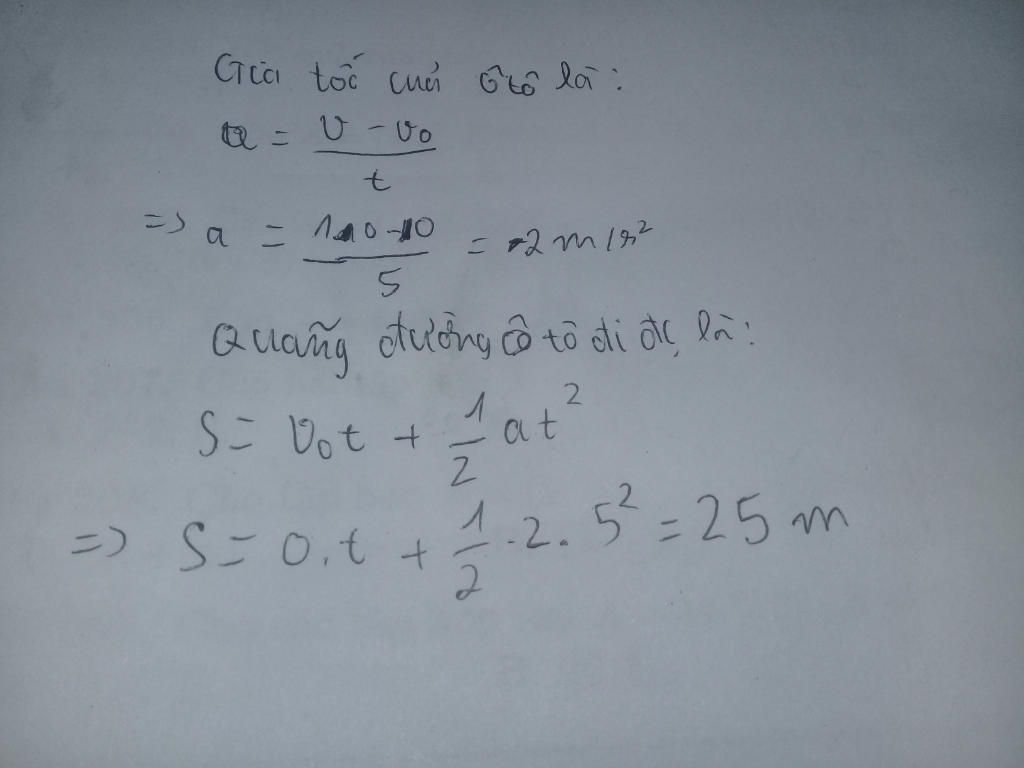 Gia tốc của ôtô là:
a = \frac{v - v_0}{t}
=> a = \frac{10-0}{5} = 2 m/s²
Quãng đường ô tô đi đc là:
S = v₀t + \frac{1}{2} at²
=> S = 0.t + \frac{1}{2} . 2 . 5² = 25 m